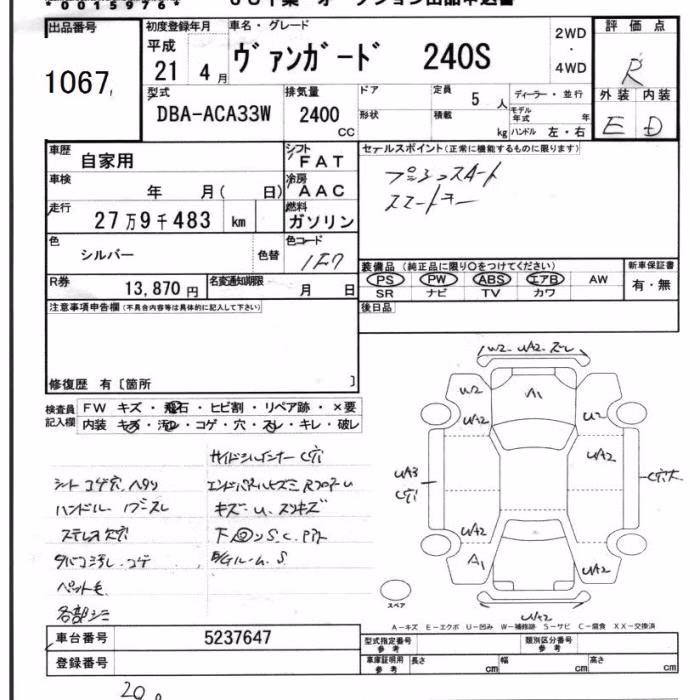 *0015976*
出品番号
1067
初度登録年月 車名・グレード
平成
21年4月
ヴァンガード 240S
2WD
・
4WD
評価点
R
型式
DBA-ACA33W
排気量
2400
CC
ドア
定員
5人
ディーラー・並行
形状
積載
kg
モデル年式 年
ハンドル 左・右
外装 内装
E D
車歴
自家用
シフト
FAT
車検
年 月( 日)
冷房
AAC
走行
27万9千483 km
燃料
ガソリン
色
シルバー
色替
色コード
1E7
R券
13,870円
名変通知期限
月 日
セールスポイント(正常に機能するものに限ります)
プッシュスタート
スマートキー
装備品(純正品に限り○をつけてください)
PS PW ABS エアB AW
SR ナビ TV カワ
新車保証書
有・無
後日品
注意事項申告欄(不具合内容等は具体的に記入して下さい)
修復歴 有〔箇所 〕
検査員
記入欄
FW キズ・飛石・ヒビ割・リペア跡・×要
内装 キズ・汚れ・コゲ・穴・スレ・キレ・破レ
サイドシルインナー C穴
シート コゲ穴、ヘタリ
ハンドル
キズ・U、
ステレオ
下回りS.C.
タバコ汚レ、コゲ
Egルーム S
ペット毛
各部シミ
W2 UA2
W2
A1
UA2
U2
UA2
UA3
C穴
C穴大
UA2
A1
UA2
UA2
スペア
A-キズ E-エクボ U-凹み W-補修跡 S-サビ C-腐食 XX-交換済
車台番号
5237647
登録番号
型式指定番号
参考
類別区分番号
参考
車庫証明用
参考
長さ cm
幅 cm
高さ cm
20